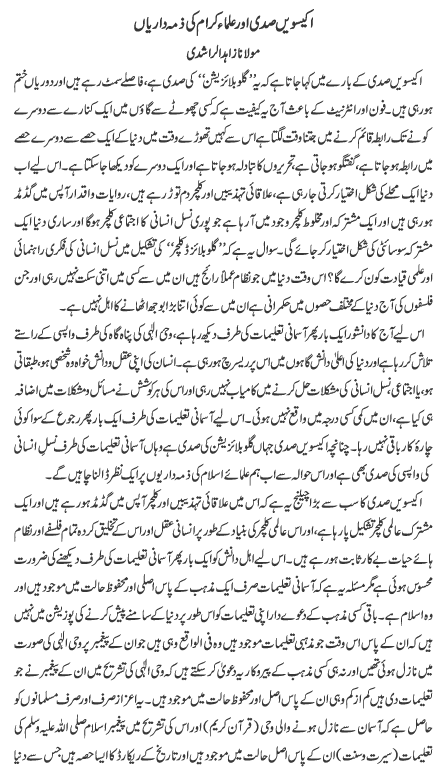 اکیسویں صدی اور علماء کرام کی ذمہ داریاں
مولانا زاہد الراشدی
اکیسویں صدی کے بارے میں کہا جاتا ہے کہ یہ ”گلوبلائزیشن“ کی صدی ہے، فاصلے سمٹ رہے ہیں اور دوریاں ختم
ہو رہی ہیں۔ فون اور انٹرنیٹ کے باعث آج یہ کیفیت ہے کہ کسی چھوٹے سے گاؤں میں ایک کنارے سے دوسرے
کونے تک رابطہ قائم کرنے میں جتنا وقت لگتا ہے اس سے کہیں تھوڑے وقت میں دنیا کے ایک حصے سے دوسرے حصے
میں رابطہ ہو جاتا ہے، گفتگو ہو جاتی ہے، تحریروں کا تبادلہ ہو جاتا ہے اور ایک دوسرے کو دیکھا جا سکتا ہے۔ اس لیے اب
دنیا ایک محلے کی شکل اختیار کرتی جا رہی ہے، علاقائی تہذیبیں اور کلچر دم توڑ رہے ہیں، روایات و اقدار آپس میں گڈمڈ
ہو رہی ہیں اور ایک مشترکہ اور مخلوط کلچر وجود میں آ رہا ہے جو پوری نسل انسانی کا اجتماعی کلچر ہوگا اور ساری دنیا ایک
مشترکہ سوسائٹی کی شکل اختیار کر جائے گی۔ سوال یہ ہے کہ ”گلوبلائزڈ کلچر“ کی تشکیل میں نسل انسانی کی فکری راہنمائی
اور علمی قیادت کون کرے گا؟ اس وقت دنیا میں جو نظام عملاً رائج ہیں ان میں سے کسی میں اتنی سکت نہیں رہی اور جن
فلسفوں کی آج دنیا کے مختلف حصوں میں حکمرانی ہے ان میں سے کوئی اتنا بڑا بوجھ اٹھانے کا اہل نہیں ہے۔
اس لیے آج کا دانشور ایک بار پھر آسمانی تعلیمات کی طرف دیکھ رہا ہے، وحی الٰہی کی پناہ گاہ کی طرف واپسی کے راستے
تلاش کر رہا ہے اور دنیا کی اعلیٰ دانش گاہوں میں اس پر ریسرچ ہو رہی ہے۔ انسان کی اپنی عقل و دانش خواہ وہ شخصی ہو، طبقاتی
ہو، یا اجتماعی ہو، نسل انسانی کی مشکلات حل کرنے میں کامیاب نہیں رہی اور اس کی ہر کوشش نے مسائل و مشکلات میں اضافہ
ہی کیا ہے، ان میں کمی کسی درجہ میں واقع نہیں ہوئی۔ اس لیے آسمانی تعلیمات کی طرف ایک بار پھر رجوع کے سوا کوئی
چارۂ کار باقی نہیں رہا۔ چنانچہ اکیسویں صدی جہاں گلوبلائزیشن کی صدی ہے وہاں آسمانی تعلیمات کی طرف نسل انسانی
کی واپسی کی صدی بھی ہے اور اس حوالہ سے اب ہم علمائے اسلام کی ذمہ داریوں پر ایک نظر ڈالنا چاہیں گے۔
اکیسویں صدی کا سب سے بڑا چیلنج یہ ہے کہ اس میں علاقائی تہذیبیں اور کلچر آپس میں گڈمڈ ہو رہے ہیں اور ایک
مشترک عالمی کلچر تشکیل پا رہا ہے، اور اس عالمی کلچر کی بنیاد کے طور پر انسانی عقل اور اس کے تخلیق کردہ تمام فلسفے اور نظام
ہائے حیات بے کار ثابت ہو رہے ہیں۔ اس لیے اہل دانش کو ایک بار پھر آسمانی تعلیمات کی طرف دیکھنے کی ضرورت
محسوس ہوئی ہے مگر مسئلہ یہ ہے کہ آسمانی تعلیمات صرف ایک مذہب کے پاس اصلی اور محفوظ حالت میں موجود ہیں اور
وہ اسلام ہے۔ باقی کسی مذہب کے دعوے دار اپنی تعلیمات کو اس طور پر دنیا کے سامنے پیش کرنے کی پوزیشن میں نہیں
ہیں کہ ان کے پاس اس وقت جو مذہبی تعلیمات موجود ہیں وہ فی الواقع وہی ہیں جو ان کے پیغمبر پر وحی الٰہی کی صورت
میں نازل ہوئی تھیں اور نہ ہی کسی مذہب کے پیروکار یہ دعویٰ کر سکتے ہیں کہ وحی الٰہی کی تشریح میں ان کے پیغمبر نے جو
تعلیمات دی ہیں کم از کم وہی ان کے پاس اصل اور محفوظ حالت میں موجود ہیں۔ یہ اعزاز صرف اور صرف مسلمانوں کو
حاصل ہے کہ آسمان سے نازل ہونے والی وحی (قرآن کریم) اور اس کی تشریح میں پیغمبر اسلام صلی اللہ علیہ وسلم کی
تعلیمات (سیرت و سنت) ان کے پاس اصل حالت میں موجود ہیں اور تاریخ کے ریکارڈ کا ایسا حصہ ہیں جس سے دنیا